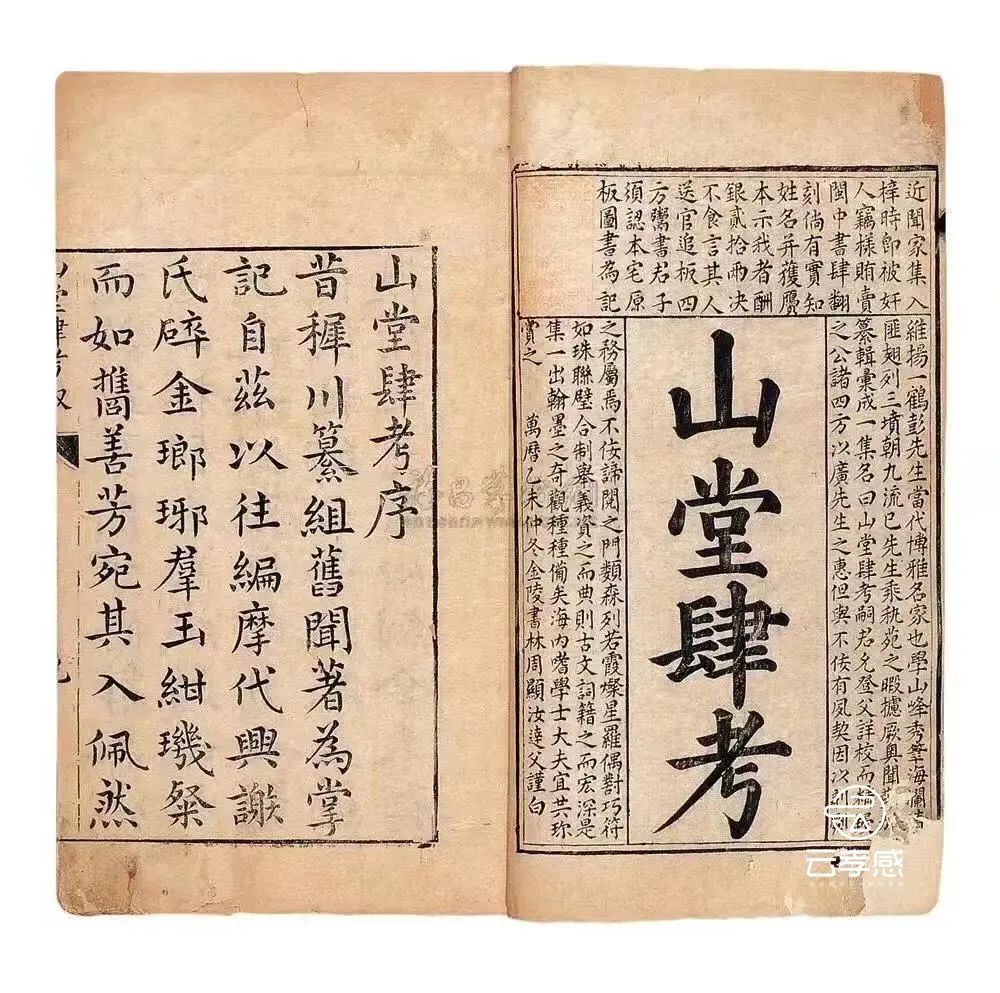 近聞家集入
梓時即被奸
人竊樣賄賣
閩中書肆翻
刻倘有實知
姓名并獲贋
本示我者酬
銀貳拾兩决
不食言其人
送官追板四
方鬻書君子
須認本宅原
板圖書為記
維揚一鶴彭先生當代博雅名家也學山峰秀筆海瀾
匪翅列三墳朝九流已先生乘秇苑之暇攄厥奧聞
纂輯彙成一集名曰山堂肆考嗣君允登父詳校而
之公諸四方以廣先生之惠但與不佞有夙契因以剞劂
山堂肆考
之務屬焉不佞諦閱之門類森列若霞燦星羅偶對巧符
如珠聯璧合制舉義資之而典則古文詞籍之而宏深是
集一出翰墨之奇觀種種備矣海內嗜學士大夫宜共珍
賞之 萬曆乙未仲冬金陵書林周顯汝達父謹白
山堂肆考序
昔稺川纂組舊聞著為掌
記自茲以往編摩代興謝
氏碎金瑯琊羣玉紺璣粲
而如擕善芳宛其入佩然
山堂肆考叙
云孝感